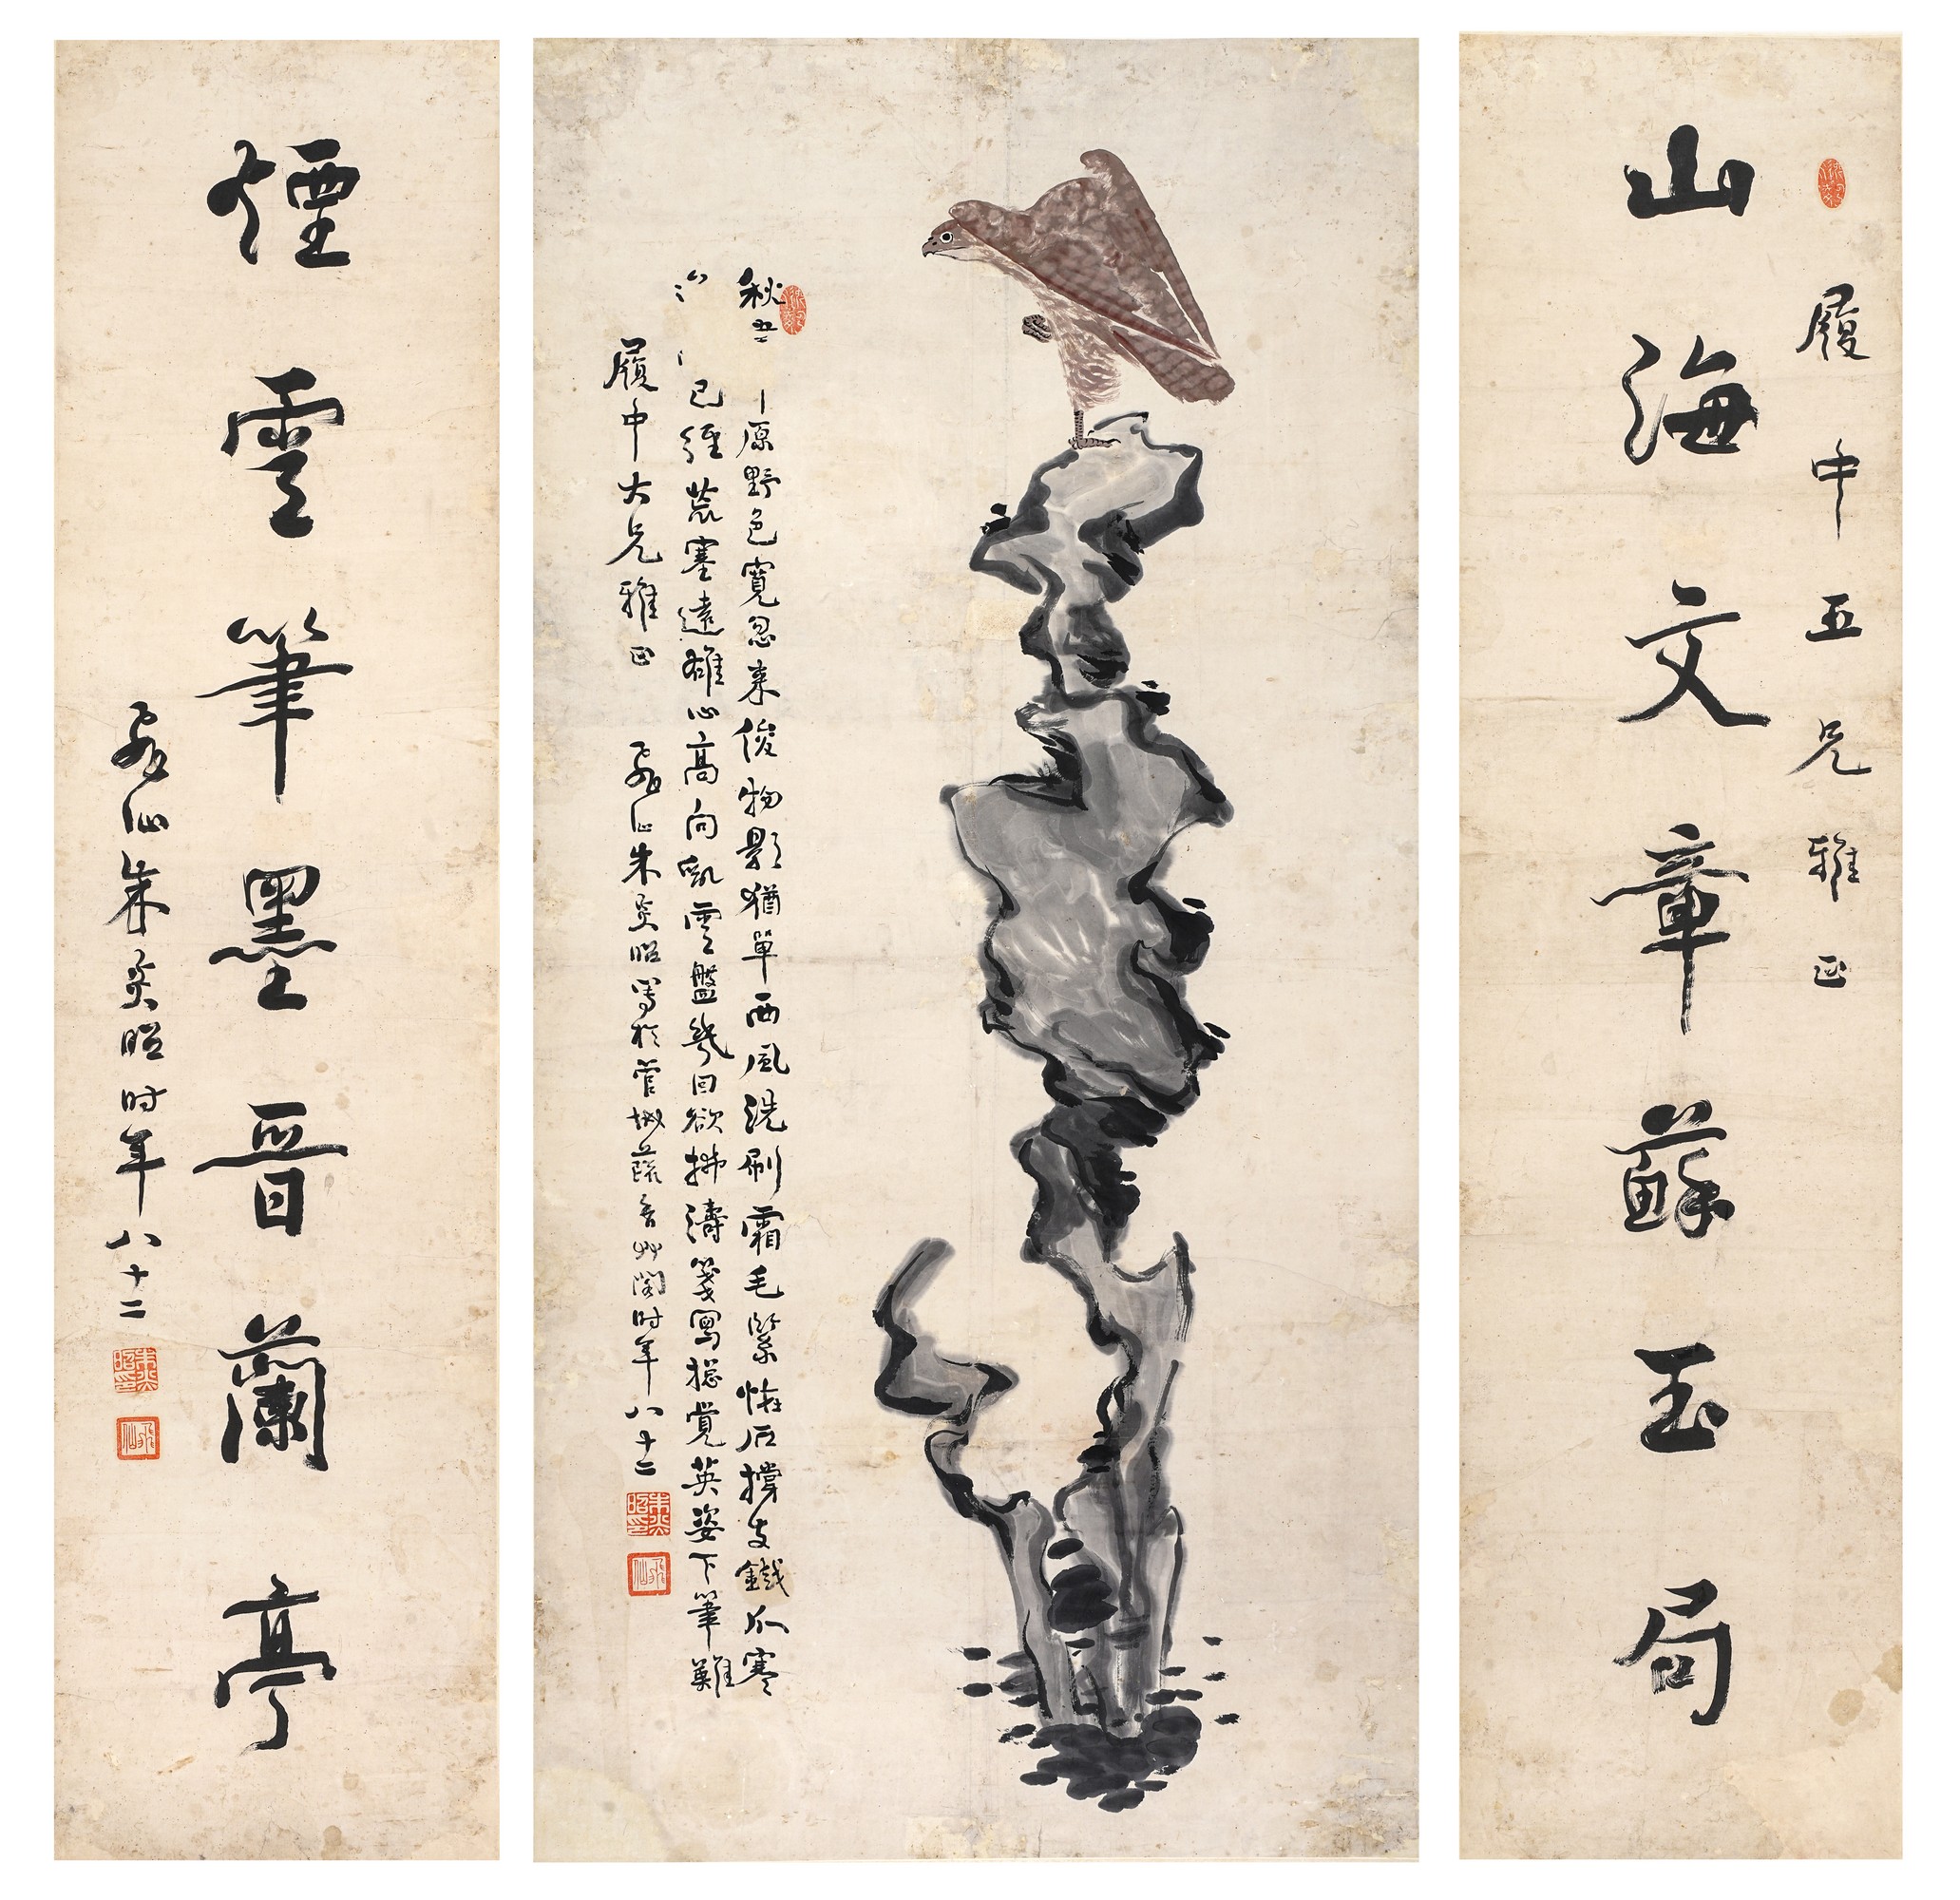 履中五兄雅正
山海文章蘇玉局
秋
原野色寬忽來俊物影猶單西風洗刷霜毛緊怪石撐支鐵爪寒
已經荒塞遠雄心高向亂雲盤幾回欲拂濤箋寫摠覺英姿下筆難
履中大兄雅正 飛仙朱炎昭寫於管城蔬香艸閣時年八十二
朱炎昭印
飛仙
煙雲筆墨晉蘭亭
飛仙朱炎昭時年八十二
朱炎昭印
飛仙